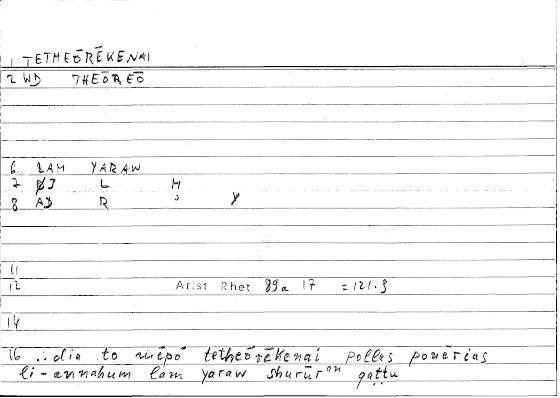 1 TETHEŌRĒKENAI
2 WD THEŌREŌ
6 LAM YARAW
7 ØJ L M
8 AD R ʾ Y
11
12 Arist Rhet 89a 17 = 121.9
14
16 ∴ dia to mēpō tetheōrēkenai pollas ponērias
li-annahum lam yaraw shurūrᵃⁿ qaṭṭu